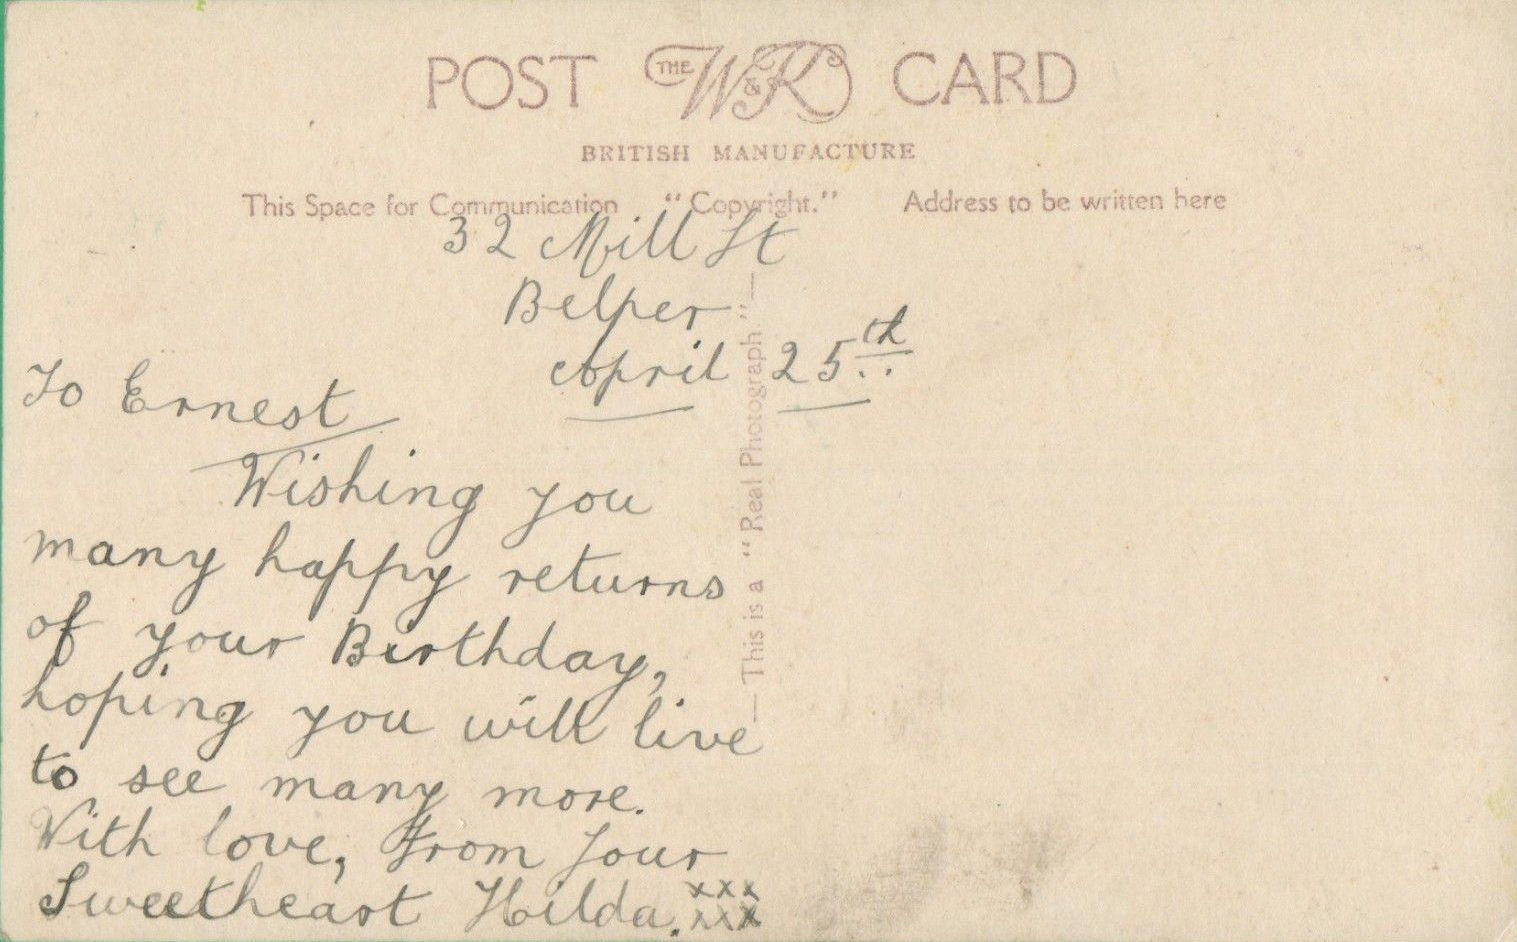 POST THE W & K CARD
BRITISH MANUFACTURE
This Space for Communication "Copyright." Address to be written here
32 Mill St
Belper
April 25th
To Ernest
Wishing you
many happy returns
of your Birthday,
hoping you will live
to see many more.
With love, From Your
Sweetheart Hilda. xxx
xxx
— This is a "Real Photograph" —